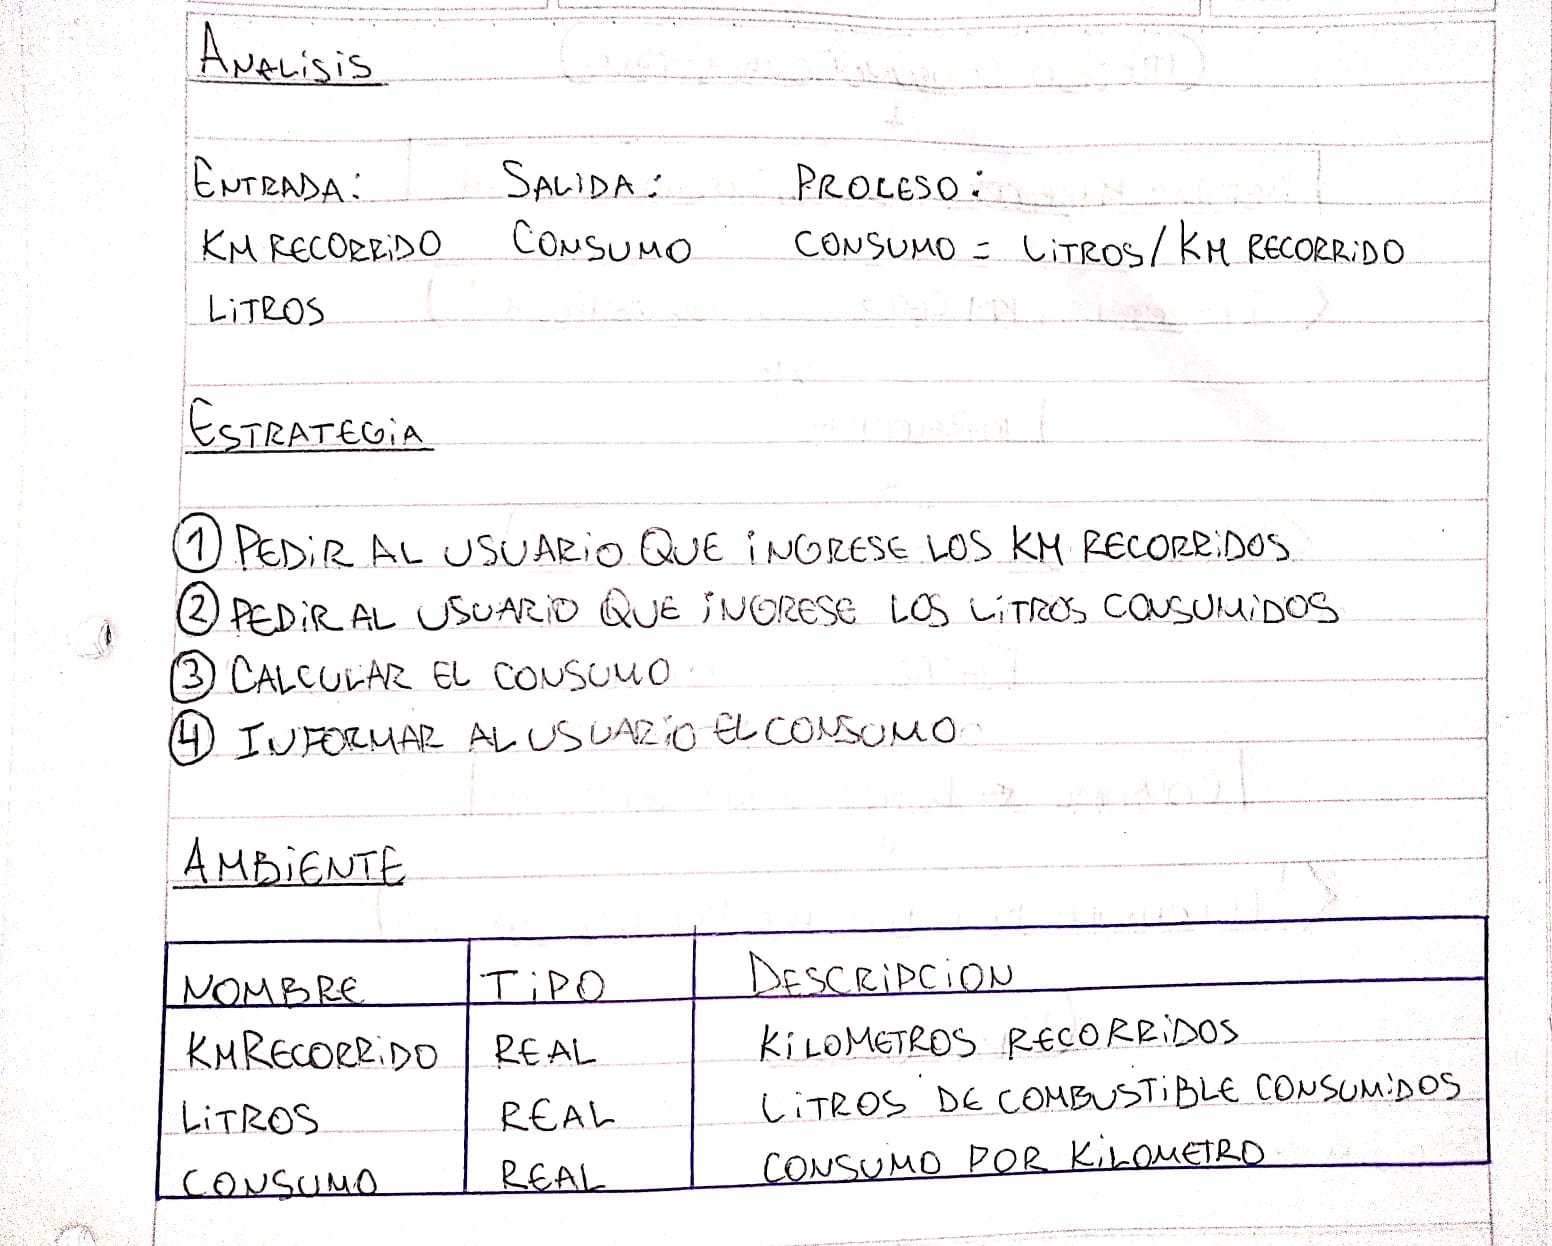 ANALiSiS
ENTRADA: SALIDA: PROCESO:
KM RECORRiDO CONSUMO CONSUMO = LiTROS/KM RECORRiDO
LiTROS
ESTRATEGiA
1 PEDiR AL USUARiO QUE iNGRESE LOS KM RECORRiDOS
2 PEDiR AL USUARiO QUE iNGRESE LOS LiTROS CONSUMiDOS
3 CALCULAR EL CONSUMO
4 INFORMAR AL USUARiO EL CONSUMO
AMBiENTE
NOMBRE TiPO DESCRiPCiON
KMRECORRiDO REAL KiLOMETROS RECORRiDOS
LiTROS REAL LiTROS DE COMBUSTiBLE CONSUMiDOS
CONSUMO REAL CONSUMO POR KiLOMETRO